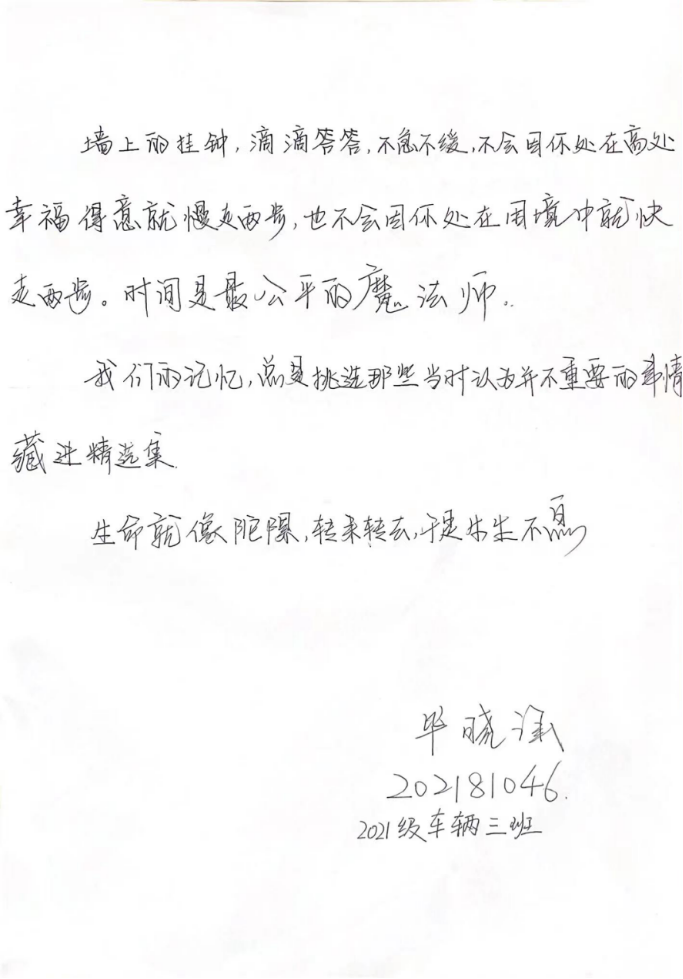 墙上的挂钟,滴滴答答,不急不缓,不会因你处在高处
幸福得意就慢走两步,也不会因你处在困境中就快
走两步。时间是最公平的魔法师.
我们的记忆,总是挑选那些当时认为并不重要的事情
藏进精选集.
生命就像陀螺,转来转去,于是生生不息
毕晓
202181046.
2021级车辆三班